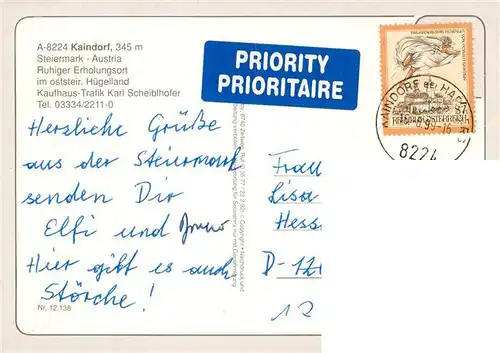 A-8224 Kaindorf, 345 m
Steiermark - Austria
Ruhiger Erholungsort
im oststeir. Hügelland
Kaufhaus-Trafik Karl Scheiblhofer
Tel. 03334/2211-0
PRIORITY
PRIORITAIRE
KAINDORF BEI HAR
8224
S7
REPUBLIK ÖSTERREICH
Herzliche Grüße
aus der Steiermark
senden Dir
Elfi und
Hier gibt es auch
Störche!
Nr. 12.138
Frau
Lisa
Hess
D-12
12